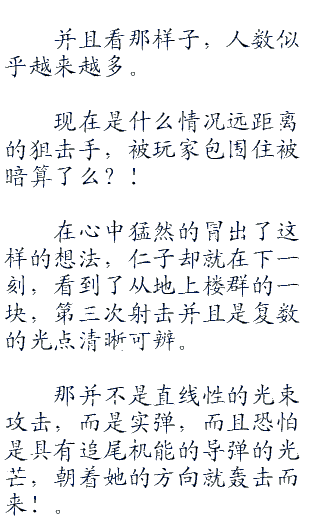 并且看那样子，人数似
乎越来越多。
现在是什么情况远距离
的狙击手，被玩家包围住被
暗算了么？！
在心中猛然的冒出了这
样的想法，仁子却就在下一
刻，看到了从地上楼群的一
块，第三次射击并且是复数
的光点清晰可辨。
那并不是直线性的光束
攻击，而是实弹，而且恐怕
是具有追尾机能的导弹的光
芒，朝着她的方向就轰击而
来！。